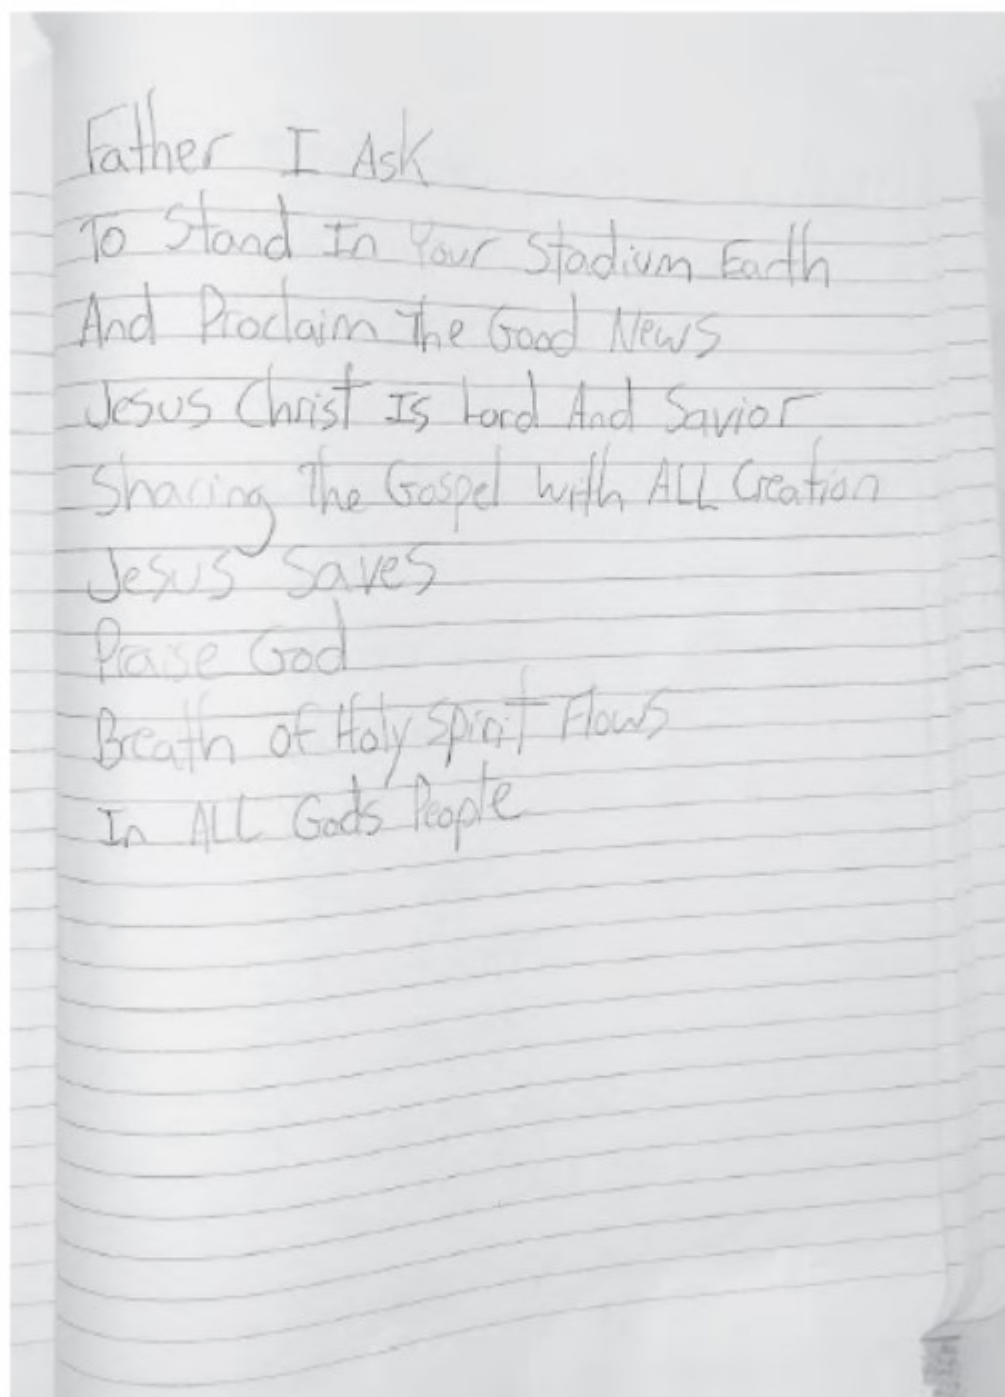 Father I Ask
To Stand In Your Stadium Earth
And Proclaim The Good News
Jesus Christ Is Lord And Savior
Sharing The Gospel with ALL Creation
Jesus Saves
Praise God
Breath of Holy Spirit Flows
In ALL God's People